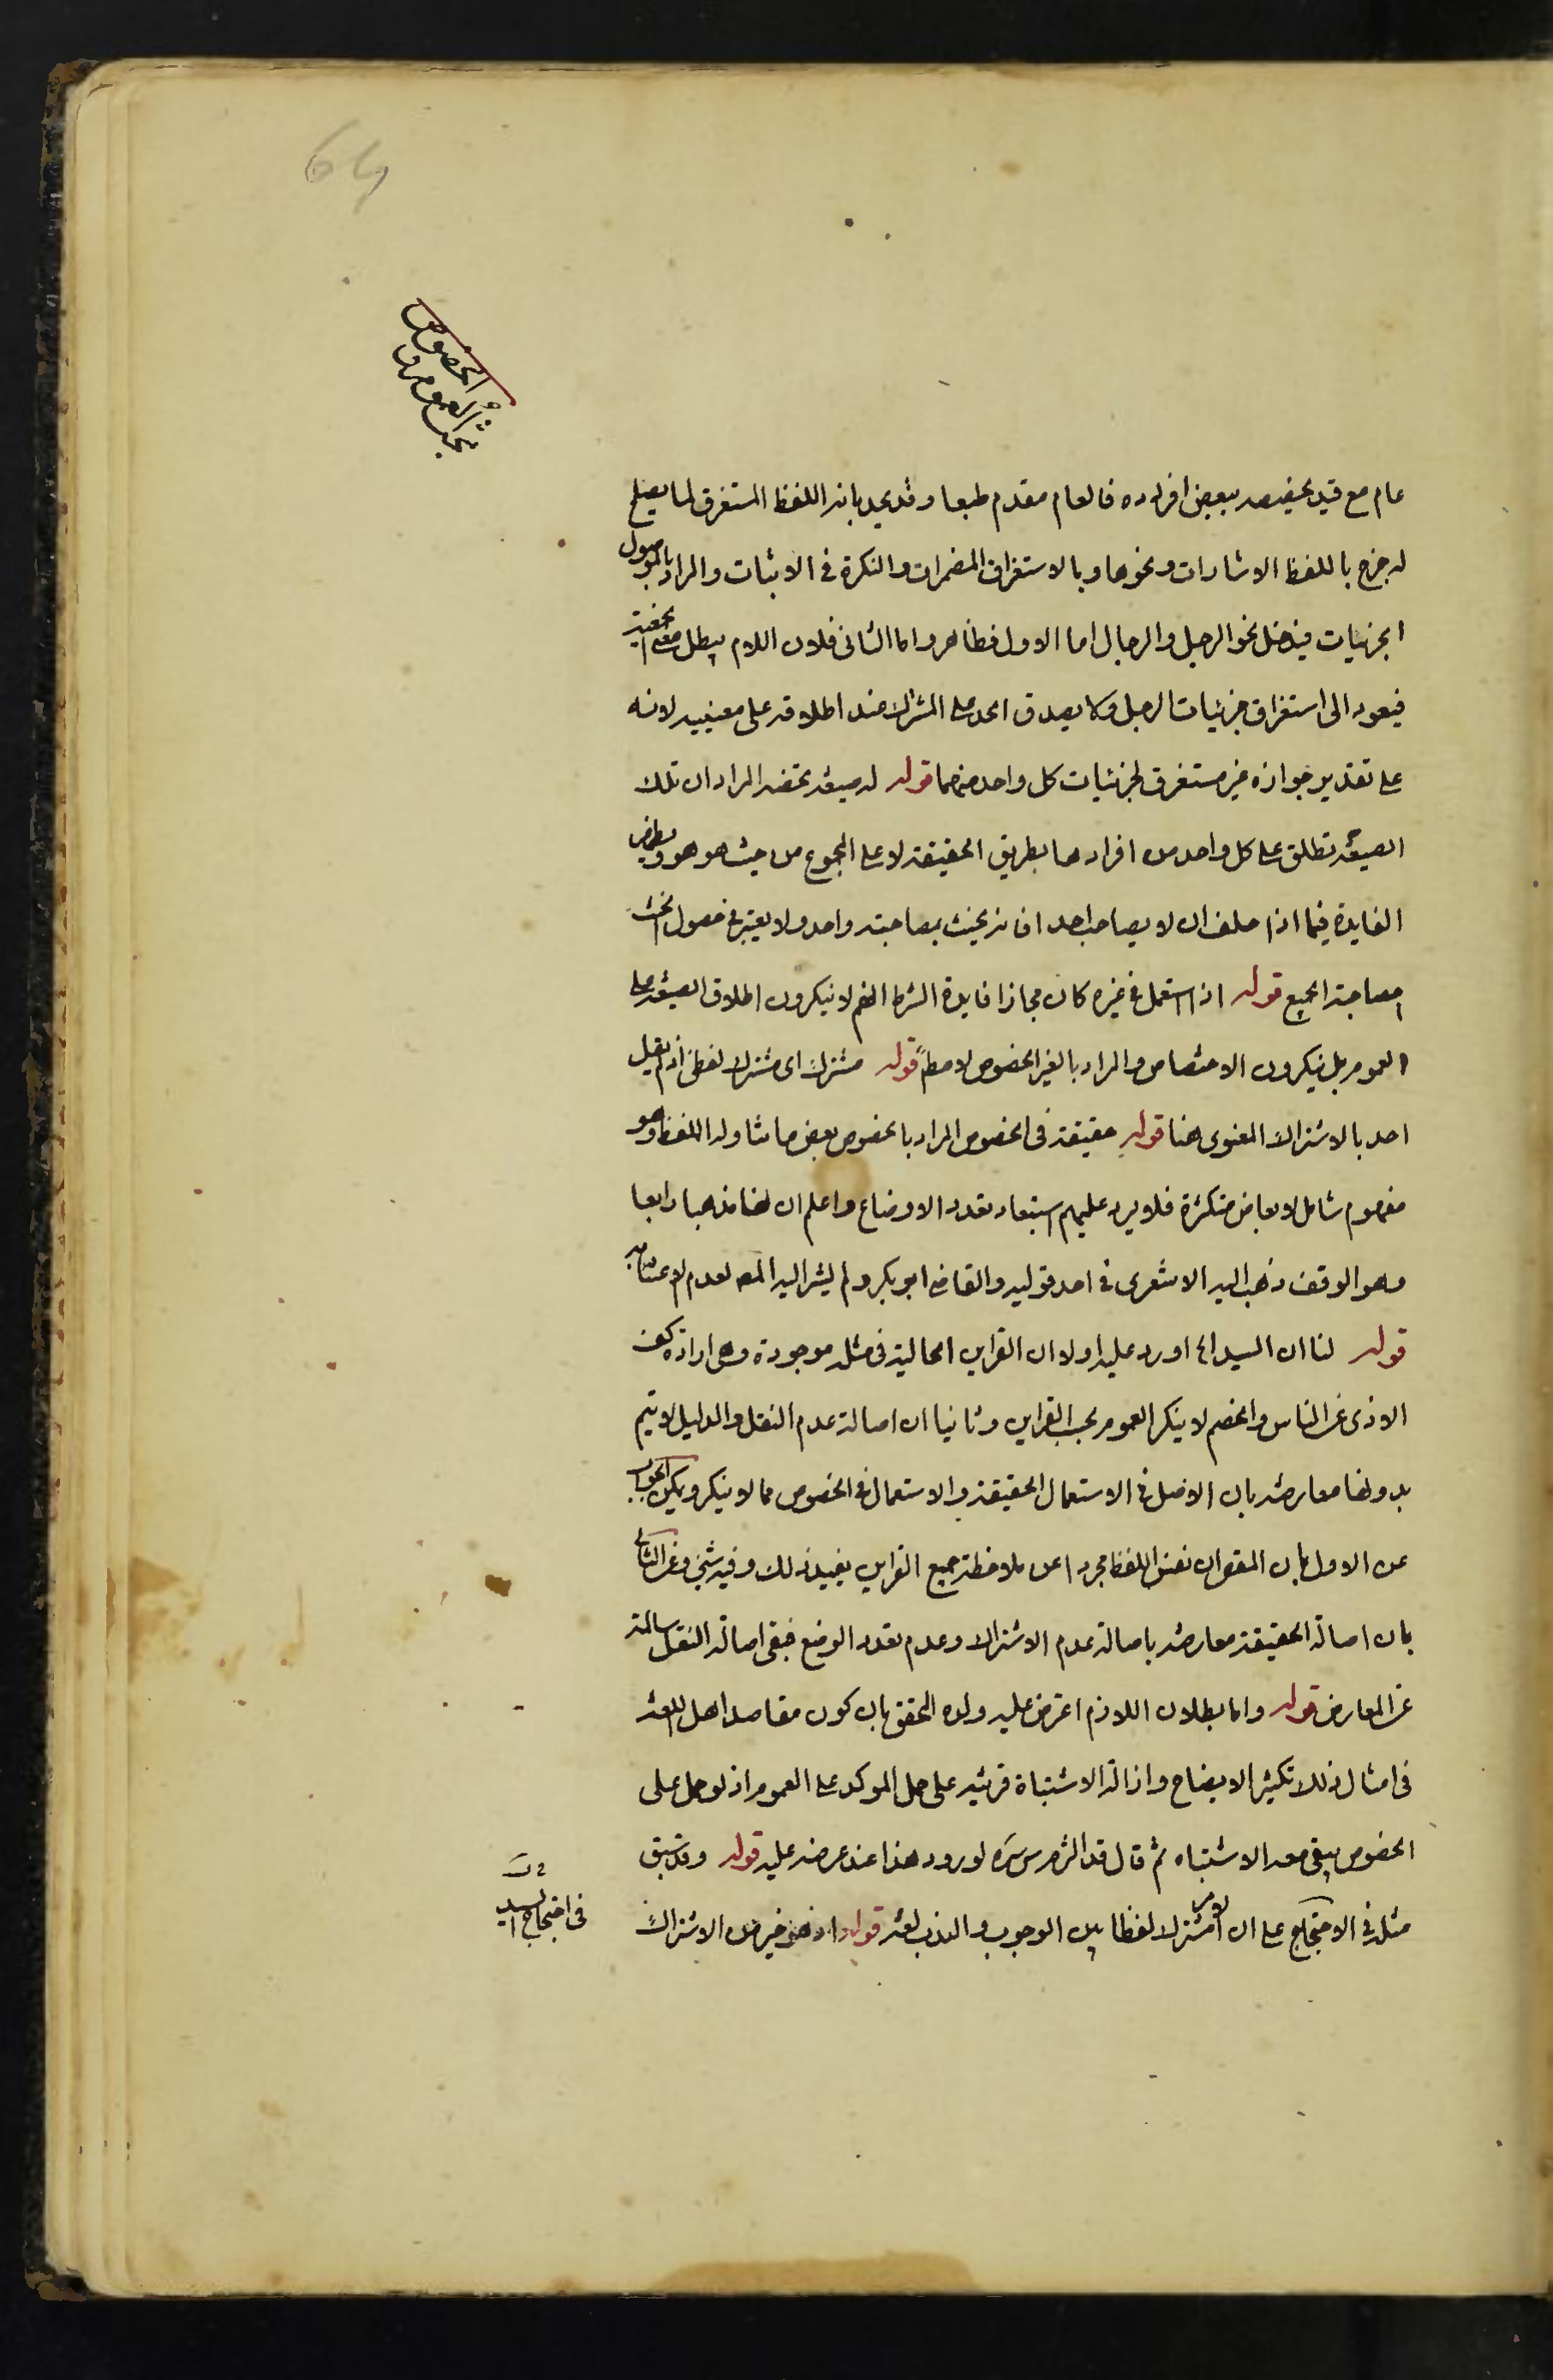 64
بحث العموم و
الخصوص
عام مع قيد تخصيصه ببعض افراده فالعام مقدم طبعا وقد يحد بانه اللفظ المستغرق لما يصلح
له خرج باللفظ الاشارات ونحوها وبالاستغراق المضمرات والنكرة في الاثبات والمراد بالموصول
الجزئيات فيدخل نحو الرجل والرجال اما الاول فظاهر واما الثاني فلان اللام يبطل معنى الجمعية
فيعود الى استغراق جزئيات الرجل ولا يصدق الحد على المشترك عند اطلاقه على معنييه لانه
على تقدير جوازه غير مستغرق لجزئيات كل واحد منهما قوله له صيغة تخصه المراد ان تلك
الصيغة تطلق على كل واحد من افرادها بطريق الحقيقة لا على المجموع من حيث هو هو ويظهر
الفايدة فيما اذا حلف ان لا يصاحب احدا فانه يحنث بمصاحبة واحد ولا يعتبر في حصول الحنث
مصاحبة الجميع قوله اذا استعمل في غيره كان مجازا فايدة الشرط انهم لا ينكرون اطلاق الصيغة على
العموم بل ينكرون الاختصاص والمراد بالغير الخصوص لا مطلقا قوله مشترك اى مشترك لفظى اذ لم يقل
احد بالاشتراك المعنوى هنا قوله حقيقة في الخصوص المراد بالخصوص بعض ما تناوله اللفظ وهو
مفهوم شامل لابعاض متكثرة فلا يرد عليهم استبعاد تعدد الاوضاع واعلم ان هنا مذهبا رابعا
وهو الوقف ذهب اليه الاشعرى في احد قوليه والقاضى ابو بكر ولم يشر اليه المصـ لعدم الاعتناء به
قوله لنا ان السيد اه اورد عليه اولا ان القراين الحالية في مثله موجودة وهى ارادة كف
الاذى عن الناس والخصم لا ينكر العموم بحسب القراين وثانيا ان اصالة عدم النقل والدليل لا يتم
بدونها معارضة بان الاصل في الاستعمال الحقيقة والاستعمال في الخصوص مما لا ينكر ويمكن الجواب
عن الاول بان المقصود ان نفس اللفظ مجردا عن ملاحظة جميع القراين يفيد ذلك وفيه شىء وعن الثانى
بان اصالة الحقيقة معارضة باصالة عدم الاشتراك وعدم تعدد الوضع فبقى اصالة النقل سالمة
عن المعارض قوله واما بطلان اللازم اعترض عليه ولده المحقق بان كون مقاصد اهل اللغة
في امثال ذلك تكثير الايضاح وازالة الاشتباة قرينة على حمل الموكد على العموم اذ لو حمل على
الخصوص يبقى معه الاشتباه ثم قال قد التزم س سره لورود هذا عند عرضه عليه قوله وقد سبق
مثله في الاحتجاج على ان الامر مشترك لفظا بين الوجوب والندب لغة قوله اذ هو خير من الاشتراك
في احتجاج السيد